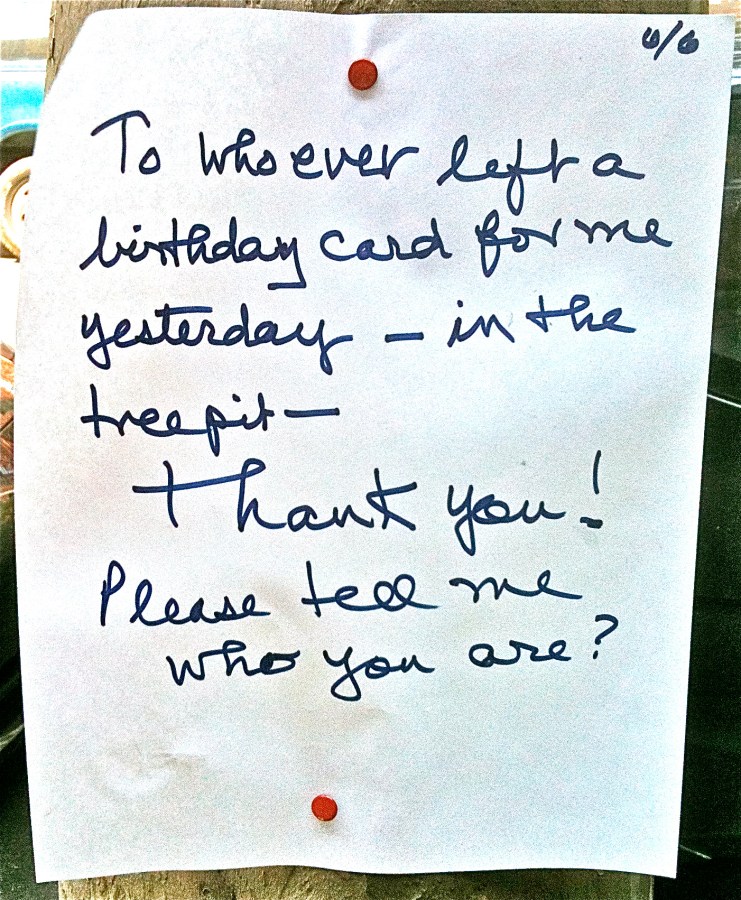 6/6
To whoever left a
birthday card for me
yesterday – in the
treepit –
Thank you!
Please tell me
who you are?